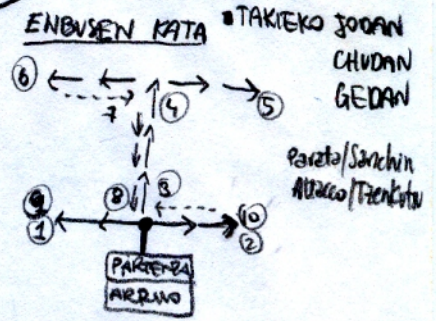 ENBUSEN KATA
• TAKIEKO JODAN
CHUDAN
GEDAN
6
4
5
7
Parata/Sanchin
Attacco/Tzenkutsu
8
3
9
1
10
2
PARTENZA
ARRIVO